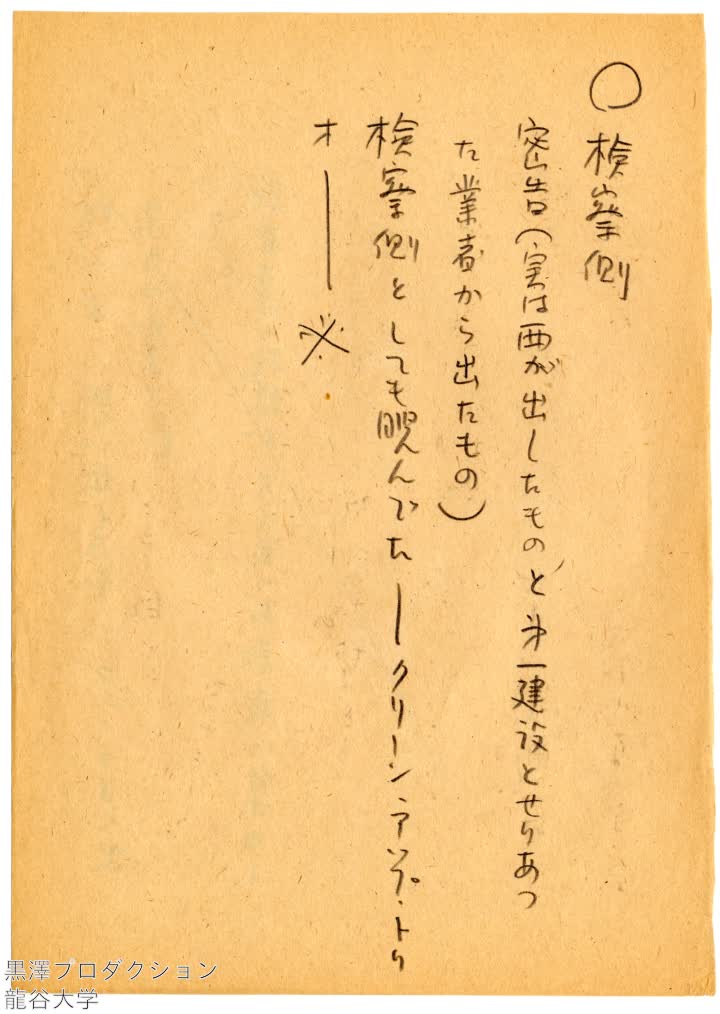 ○ 検察側
密告(実は西が出したものと、㐧一建設とせりあつ
た業者から出たもの)
検察側としても睨んでた―クリーン・アップ・トリ
オ― ※
黒澤プロダクション
龍谷大学